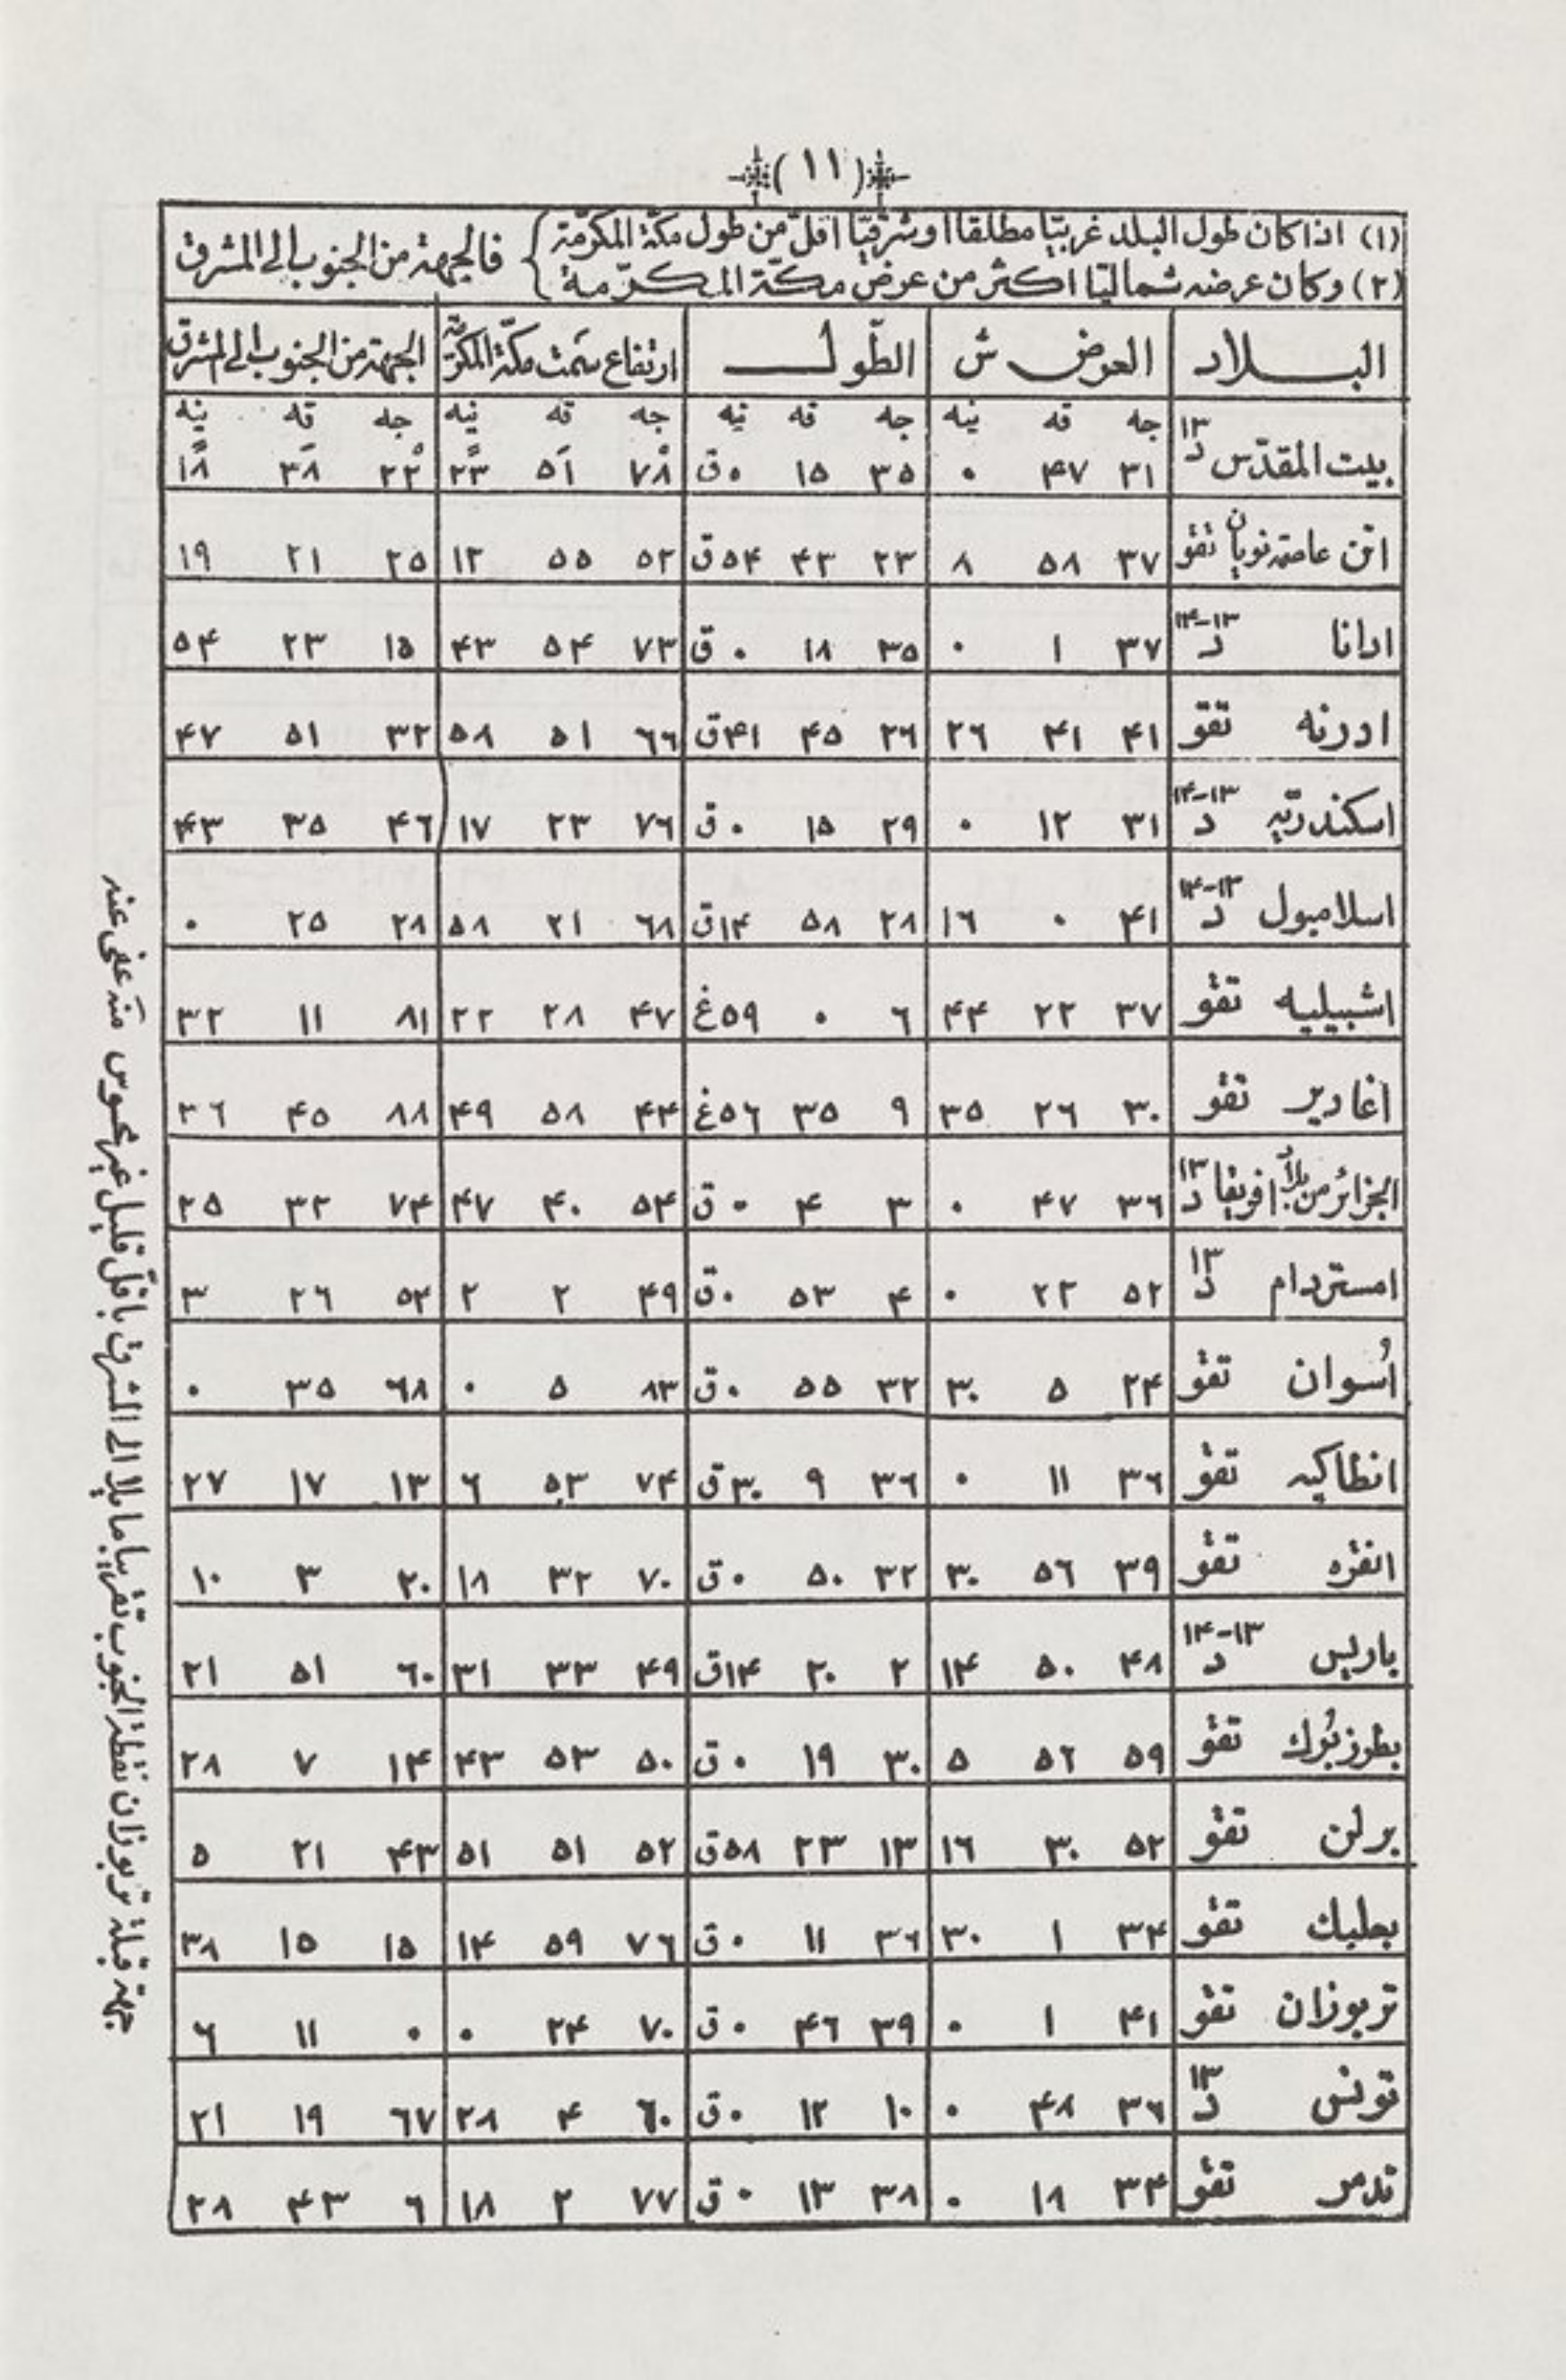 (١١)
(١) اذا كان طول البلد غربيّا مطلقا او شرقيّا اقلّ من طول مكّة المكرّمة
(٢) وكان عرضه شماليّا اكثر من عرض مكّة المكرّمة
} فالجهة من الجنوب الى المشرق
البلاد العرض ش الطّول ارتفاع سمت مكّة المكرّمة الجهة من الجنوب الى المشرق
جه قه نيه جه قه نيه جه قه نيه جه قه نيه
بيت المقدّس د١٣ ٣١ ۴٧ ٠ ٣٥ ١٥ ٠ق ٧٨ ٥١ ٢٣ ٢٢ ٣٨ ١٨
اتن عاصمه نويان تقو ٣٧ ٥٨ ٨ ٢٣ ۴٣ ٥۴ق ٥٢ ٥٥ ١٢ ٢٥ ٢١ ١٩
ادانا د١٣-١۴ ٣٧ ١ ٠ ٣٥ ١٨ ٠ق ٧٣ ٥۴ ۴٣ ١٥ ٢٣ ٥۴
ادرنه تقو ۴١ ۴١ ٢٦ ٢٦ ۴٥ ۴١ق ٦٦ ٥١ ٥٨ ٣٢ ٥١ ۴٧
اسكندريّه د١٣-١۴ ٣١ ١٢ ٠ ٢٩ ١٥ ٠ق ٧٦ ٢٣ ١٧ ۴٦ ٣٥ ۴٣
اسلامبول د١٣-١۴ ۴١ ٠ ١٦ ٢٨ ٥٨ ١۴ق ٦٨ ٢١ ٥٨ ٢٨ ٢٥ ٠
اشبيليه تقو ٣٧ ٢٢ ۴۴ ٦ ٠ ٥٩غ ۴٧ ٢٨ ٢٢ ٨١ ١١ ٣٢
اغادير تقو ٣٠ ٢٦ ٣٥ ٩ ٣٥ ٥٦غ ۴۴ ٥٨ ۴٩ ٨٨ ۴٥ ٣٦
الجزائر من بلاد افريقا د١٣ ٣٦ ۴٧ ٠ ٣ ۴ ٠ق ٥۴ ۴٠ ۴٧ ٧۴ ٣٢ ٢٥
امستردام د١٣ ٥٢ ٢٢ ٠ ۴ ٥٣ ٠ق ۴٩ ٢ ٢ ٥٤ ٢٦ ٣
اُسوان تقو ٢۴ ٥ ٣٠ ٣٢ ٥٥ ٠ق ٨٣ ٥ ٠ ٦٨ ٣٥ ٠
انطاكيه تقو ٣٦ ١١ ٠ ٣٦ ٩ ٣٠ق ٧۴ ٥٣ ٦ ١٣ ١٧ ٢٧
انقره تقو ٣٩ ٥٦ ٣٠ ٣٢ ٥٠ ٠ق ٧٠ ٣٢ ١٨ ٢٠ ٣ ١٠
پاريس د١٣-١۴ ۴٨ ٥٠ ١۴ ٢ ٢٠ ١۴ق ۴٩ ٣٣ ٣١ ٦٠ ٥١ ٢١
بطرزبُرك تقو ٥٩ ٥٦ ٥ ٣٠ ١٩ ٠ق ٥٠ ٥٣ ۴٣ ١۴ ٧ ٢٨
برلن تقو ٥٢ ٣٠ ١٦ ١٣ ٢٣ ٥٨ق ٥٢ ٥١ ٥١ ۴٣ ٢١ ٥
بعلبك تقو ٣۴ ١ ٣٠ ٣٦ ١١ ٠ق ٧٦ ٥٩ ١۴ ١٥ ١٥ ٣٨
تربوزان تقو ۴١ ١ ٠ ٣٩ ۴٦ ٠ق ٧٠ ٢۴ ٠ ٠ ١١ ٦
تونس د١٣ ٣٦ ۴٨ ٠ ١٠ ١٢ ٠ق ٦٠ ۴ ٢٨ ٦٧ ١٩ ٢١
تدمر تقو ٣۴ ١٨ ٠ ٣٨ ١٣ ٠ق ٧٧ ٢ ١٨ ٦ ۴٣ ٢٨
جهة قبلة تربوزان نقطة الجنوب تقريبا مايلا الى الشرق باقلّ قليل غير محسوس منه عفى عنه